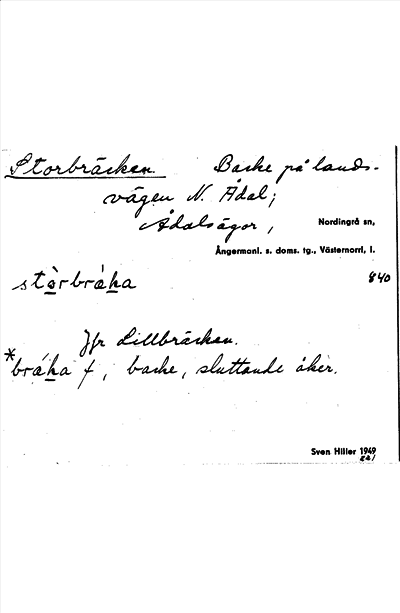 Storbräcken. Backe på lands-
vägen N. Ådal;
Ådalsägor, Nordingrå sn,
Ångermanl. s. doms. tg., Västernorrl, l.
840
Jfr Lillbräckan.
f, backe, sluttande åker.
Sven Hiller 1949